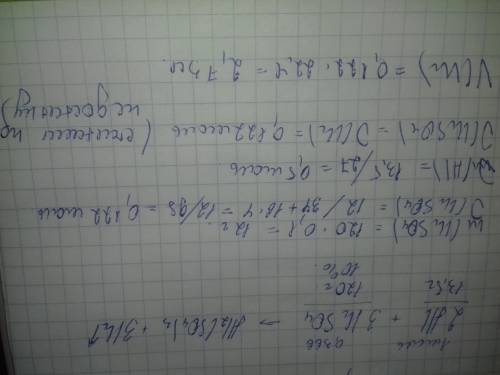 2Al + 3H₂SO₄ → Al₂(SO₄)₃ + 3H₂↑
13,5г 120г
10%
m(H₂SO₄) = 120 · 0,1 = 12г
ν(H₂SO₄) = 12 / 34+16·4 = 12/98 = 0,122 моль
ν(Al) = 13,5/27 = 0,5 моль
ν(H₂SO₄) = ν(H₂) = 0,122 моль (считаем по
недостатку)
V(H₂) = 0,122 · 22,4 =